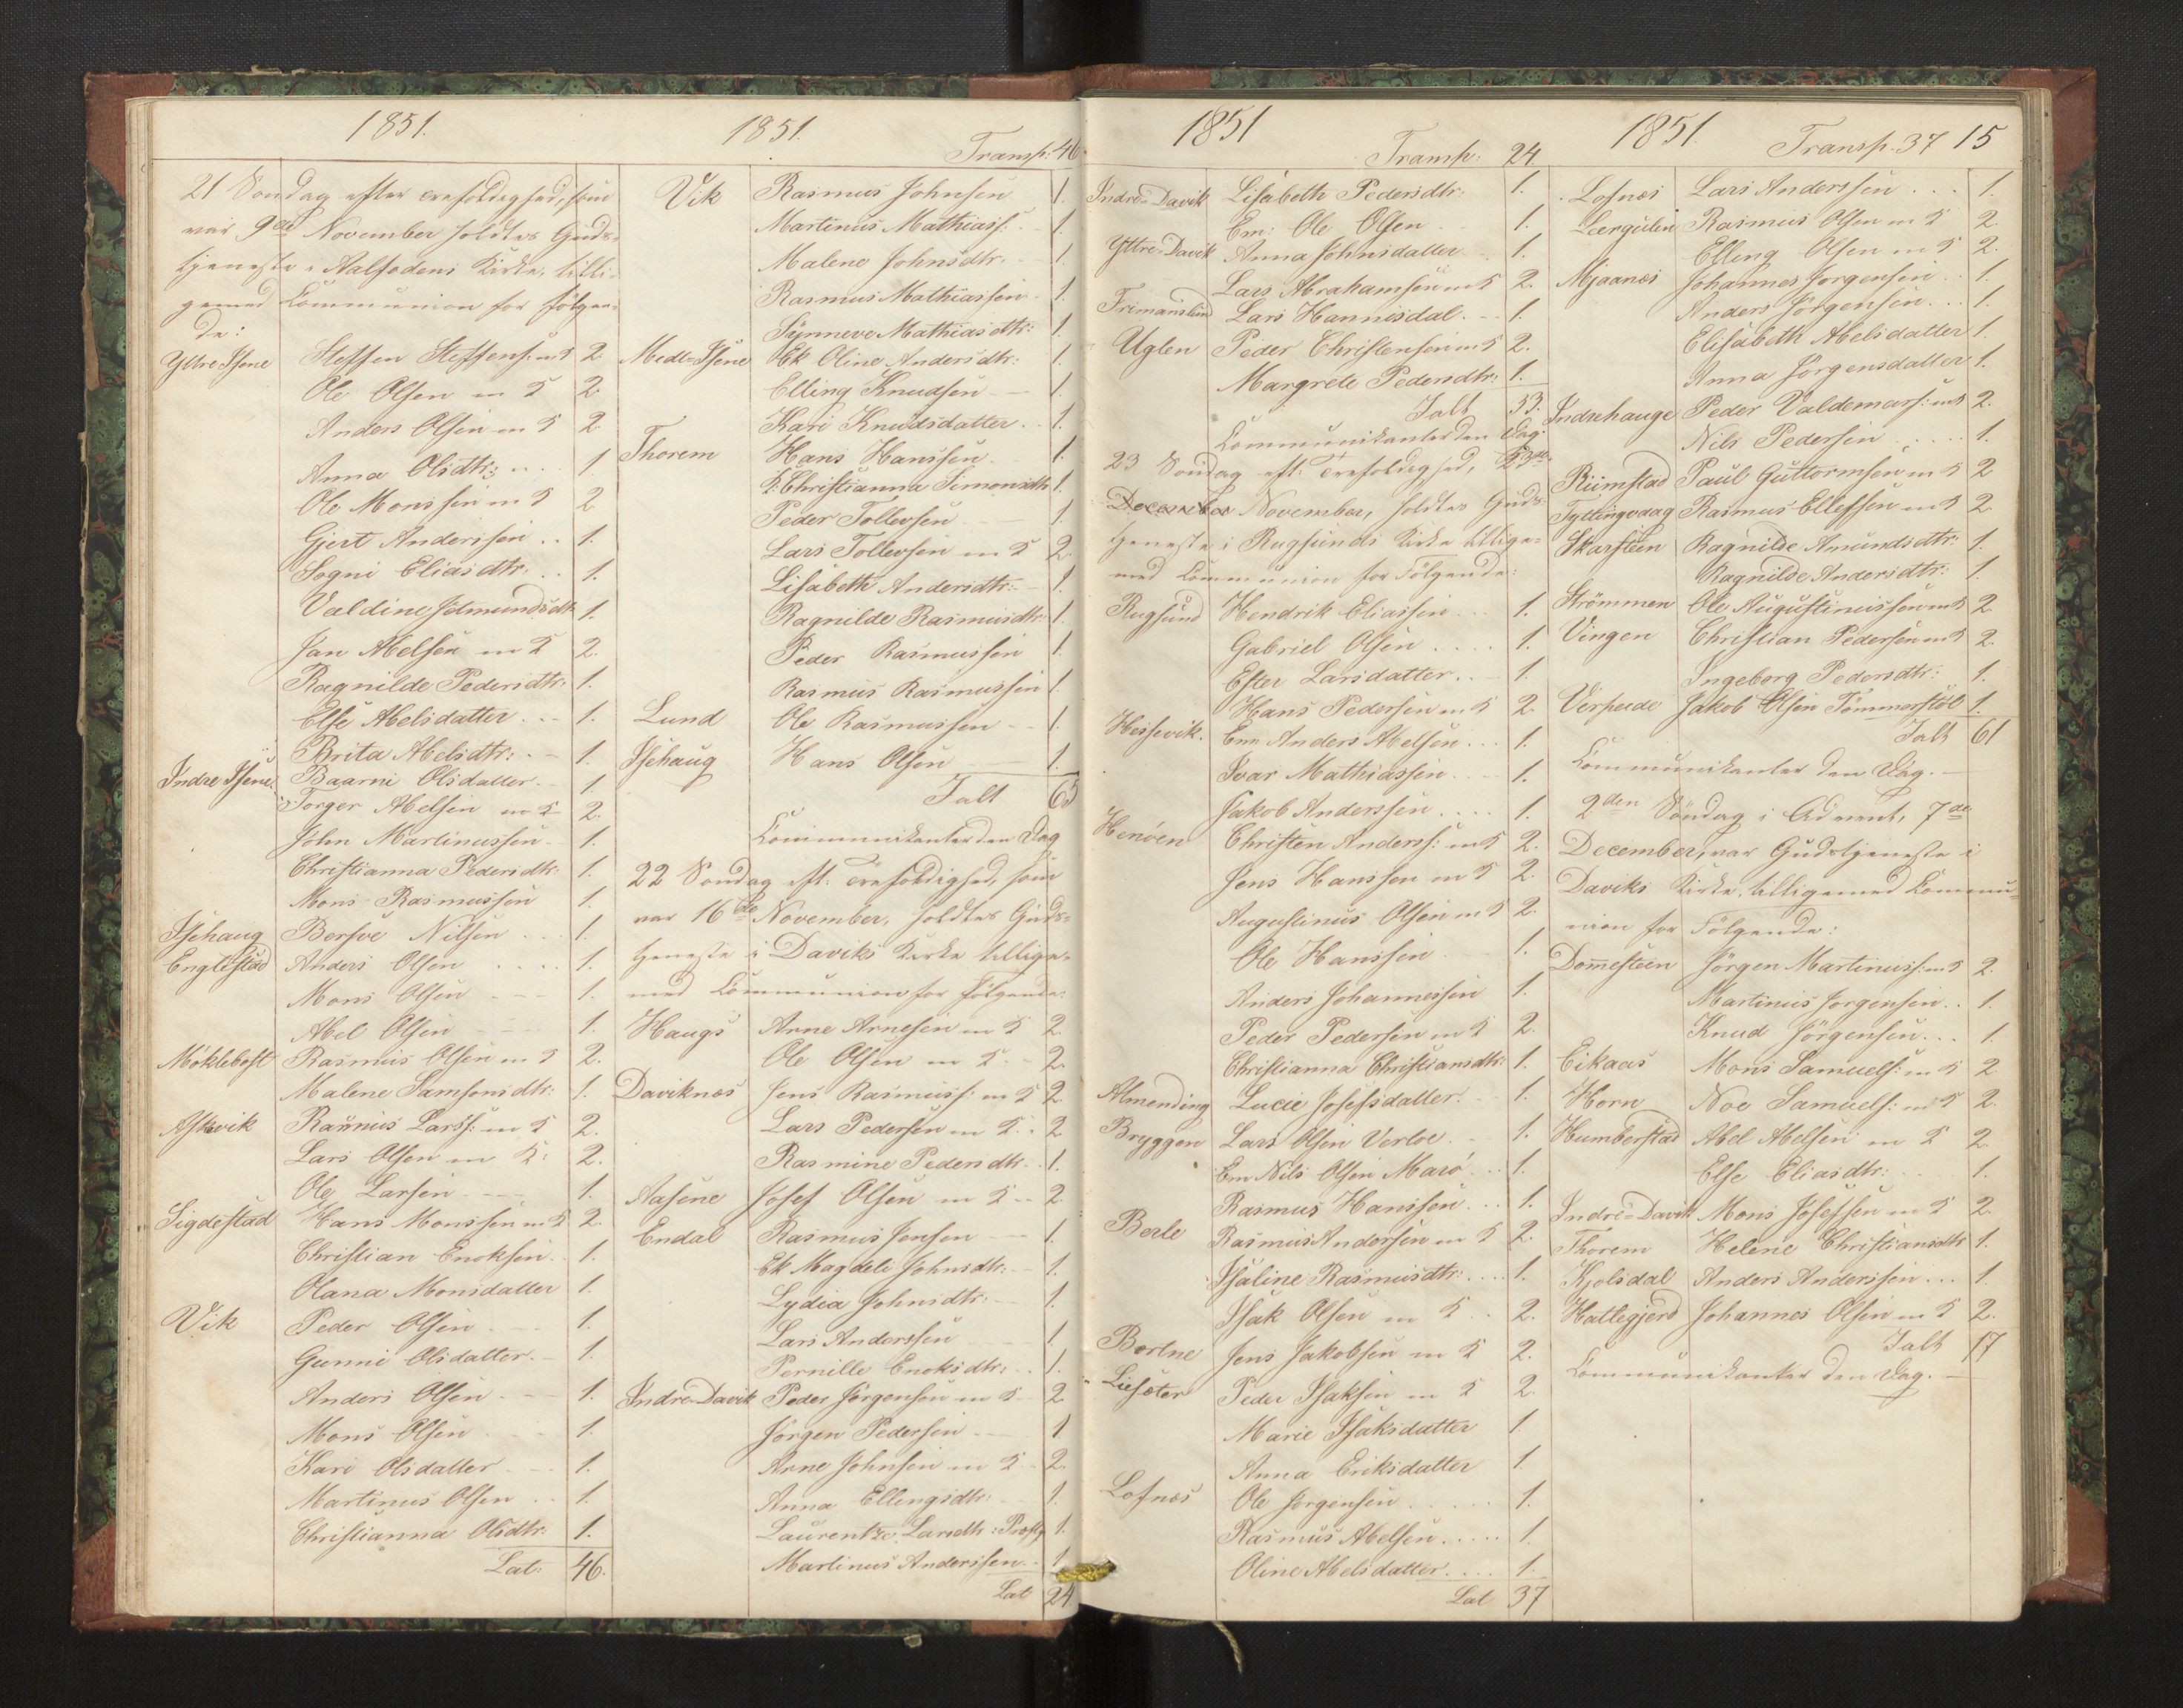 1851.
21 Söndag efter Trefoldighed, som
var 9de November holdtes Guds-
tjeneste i Aalfodens Kirke, tilli-
gemed Communion for følgen-
de:
Yttre Isene Steffen Steffens: m K 2.
Ole Olsen m K 2.
Anders Olsen m K 2.
Anna Olsdtr: 1
Ole Monssen m K 2
Gjert Anderssen .. 1.
Sogni Eliasdtr. .. 1.
Valdine 1.
Jan Abelsen m K 2.
Ragnilde Pedersdtr: 1.
Else Abelsdatter . - 1.
Brita Abelsdtr: - 1.
Indre Isene Baarni Olsdatter - 1.
Torger Abelsen m K 2.
John Martinussen - 1.
Christianna Pedersdtr: 1.
Mons Rasmussen 1.
Isehaug Bersve Nilsen . . 1.
Englestad Anders Olsen .... 1.
Mons Olsen - - - 1.
Abel Olsen - - - 1.
Möklebost Rasmus Olsen m K 2.
Malene Samsonsdtr: 1.
Askevik Rasmus Larss: m K 2.
Lars Olsen m K: 2.
Ole Larsen - - 1.
Sigdestad Hans Monssen m K 2.
Christian Enoksen . 1.
Olana Monsdatter 1.
Vik Peder Olsen - 1.
Gunni Olsdatter. - 1.
Anders Olsen - 1.
Mons Olsen - 1.
Kari Olsdatter - 1.
Martinus Olsen . . 1.
Christianna Olsdtr: 1.
Lat: 46.
1851.
Transp: 46.
Vik Rasmus Johnsen 1.
Martinus Mathiass: - 1.
Malene Johnsdtr. - 1.
Rasmus Mathiassen - 1.
Synneve Mathiasdtr: 1.
Medl-Isene Ek Oline Andersdtr: 1.
Elling Knudsen - 1.
Kari Knudsdatter . 1.
Thorem Hans Hanssen - 1.
K: Christianna Simonsdtr 1.
Peder Tollevsen - 1.
Lars Tollevsen m K 2
Lisabeth Andersdtr: - 1.
Ragnilde Rasmusdtr: 1.
Peder Rasmussen 1.
Rasmus Rasmussen 1.
Lund Ole Rasmussen - 1.
Isehaug Hans Olsen - 1.
Ialt 65
Communikanter den Dag
22 Söndag eft. Trefoldighed, som
var 16de November, holdtes Guds-
tjeneste i Daviks Kirke tillige-
med Communion for Følgende:
Haugs Arne Arnesen m K 2.
Ole Olsen m K - 2.
Daviknæs Jens Rasmuss: m K 2.
Lars Pedersen m K . 2
Rasmine Pedersdtr - 1.
Aasene Josef Olsen m K - 2.
Endal Rasmus Jensen - 1.
Ek Magdeli Johnsdtr: - 1.
Lydia Johnsdtr: - 1.
Lars Anderssen 1.
Pernille Enoksdtr: . 1.
Indre-Davik Peder Jörgensen m K - 2
Jörgen Pedersen - 1
Arne Johnsen m K - 2.
Anna Ellingsdtr: 1.
Laurentze Larsdtr: 1.
Martinus Anderssen - 1
Lat 24.
1851
Transp: 24.
Indre-Davik Lisabeth Pedersdtr: 1.
Em: Ole Olsen 1.
Yttre-Davik Anna Johnsdatter - 1.
Lars Abrahamsen m K 2.
Lars Hannisdal. - 1.
Uglen Peder Christensen m K 2.
Margrete Pedersdtr: 1.
Ialt 33.
Communikanter den Dag.
23 Söndag eft: Trefoldighed, 23de
December November, holdtes Guds-
tjeneste i Rugsunds Kirke tillige-
med Communion for Følgende:
Rugsund Hendrik Eliassen - 1.
Gabriel Olsen .... 1.
Ester Larsdatter. . - 1.
Hans Pedersen m K 2
Hessevik. Em Anders Abelsen ... 1.
Ivar Mathiassen - - 1.
Jakob Anderssen .... 1.
Henöen Christen Anderss: m K 2.
Jens Hanssen m K 2.
Augustinus Olsen m K 2.
Ole Hanssen - 1.
Anders Johannessen 1.
Peder Pedersen m K 2.
Christianna Christiansdtr: 1.
Almending Lucie Josefsdatter. - 1.
Bryggen Lars Olsen Vorloe. - 1.
Em Nils Olsen Marö ... 1.
Rasmus Hanssen ... 1.
Berle Rasmus Andersen m K 2.
Isaline Rasmusdtr: ... 1.
Isak Olsen m K . . 2.
Bortne Jens Jakobsen m K 2.
Liesæter Peder Isaksen m K 2.
Marie Isaksdatter 1
Anna Eriksdatter 1.
Lofnæs Ole Jörgensen ..... 1.
Rasmus Abelsen ..... 1.
Oline Abelsdatter .... 1.
Lat 37
1851. Transp. 37 15
Lofnæs Lars Anderssen ... 1.
Leergulen Rasmus Olsen m K 2
Elling Olsen m K 2.
Mjaanæs Johannes Jorgensen .. 1.
Anders Jörgensen ... 1.
Elisabeth Abelsdatter 1.
Anna Jörgensdatter 1.
Indrehauge Peder Valdemars: m K 2.
Nils Pedersen ..... 1.
Riimstad Paul Guttormsen m K 2
Tyttingvaag Rasmus Ellefsen m K 2
Skarsteen Ragnilde Amundsdtr: 1.
Ragnilde Andersdtr: 1.
Strömmen Ole Augustinussen m K 2
Vingen Christian Pedersen m K 2.
Ingeborg Pedersdtr: 1.
Verpeide Jakob Olsen Tömmerstöl 1.
Ialt 61
Communikanter den Dag. -
2den Söndag i Advent, 7de
December, var Gudstjeneste i
Daviks Kirke, tilligemed Commu-
nion for Følgende:
Domesteen Jörgen Martinuss: m K 2.
Martinus Jorgensen .. 1.
Knud Jörgensen ... 1.
Eikaas Mons Samuels: m K 2
Horn Noe Samuels: m K 2.
Humberstad Abel Abelsen m K 2
Else Eliasdtr: - 1.
Indre-Davik Mons Josefsen m K 2.
Thorem Helene Christiansdtr 1.
Kjolsdal Anders Anderssen ... 1.
Hattegjerd Johannes Olsen m K 2.
Ialt 17
Communikanter den Dag. -